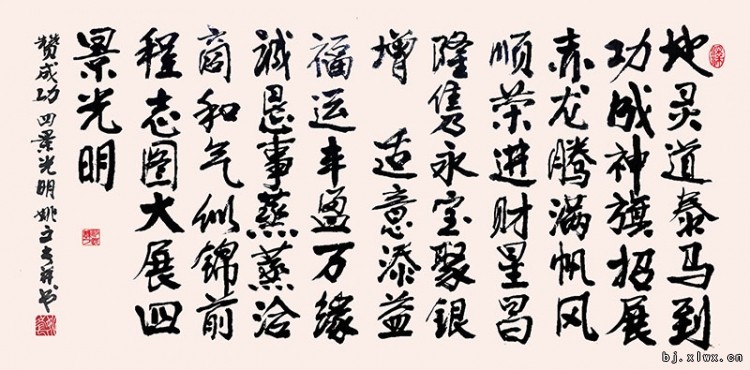 地灵道泰马到
功成神旗招展
赤龙腾满帆风
顺荣进财星昌
隆隽永宝聚银
增 适意添益
福运丰盈万缘
诚恳事蒸蒸洽
商和气似锦前
程志图大展四
景光明
赞成功 四景光明 姚立 并书
bj.xlwx.cn